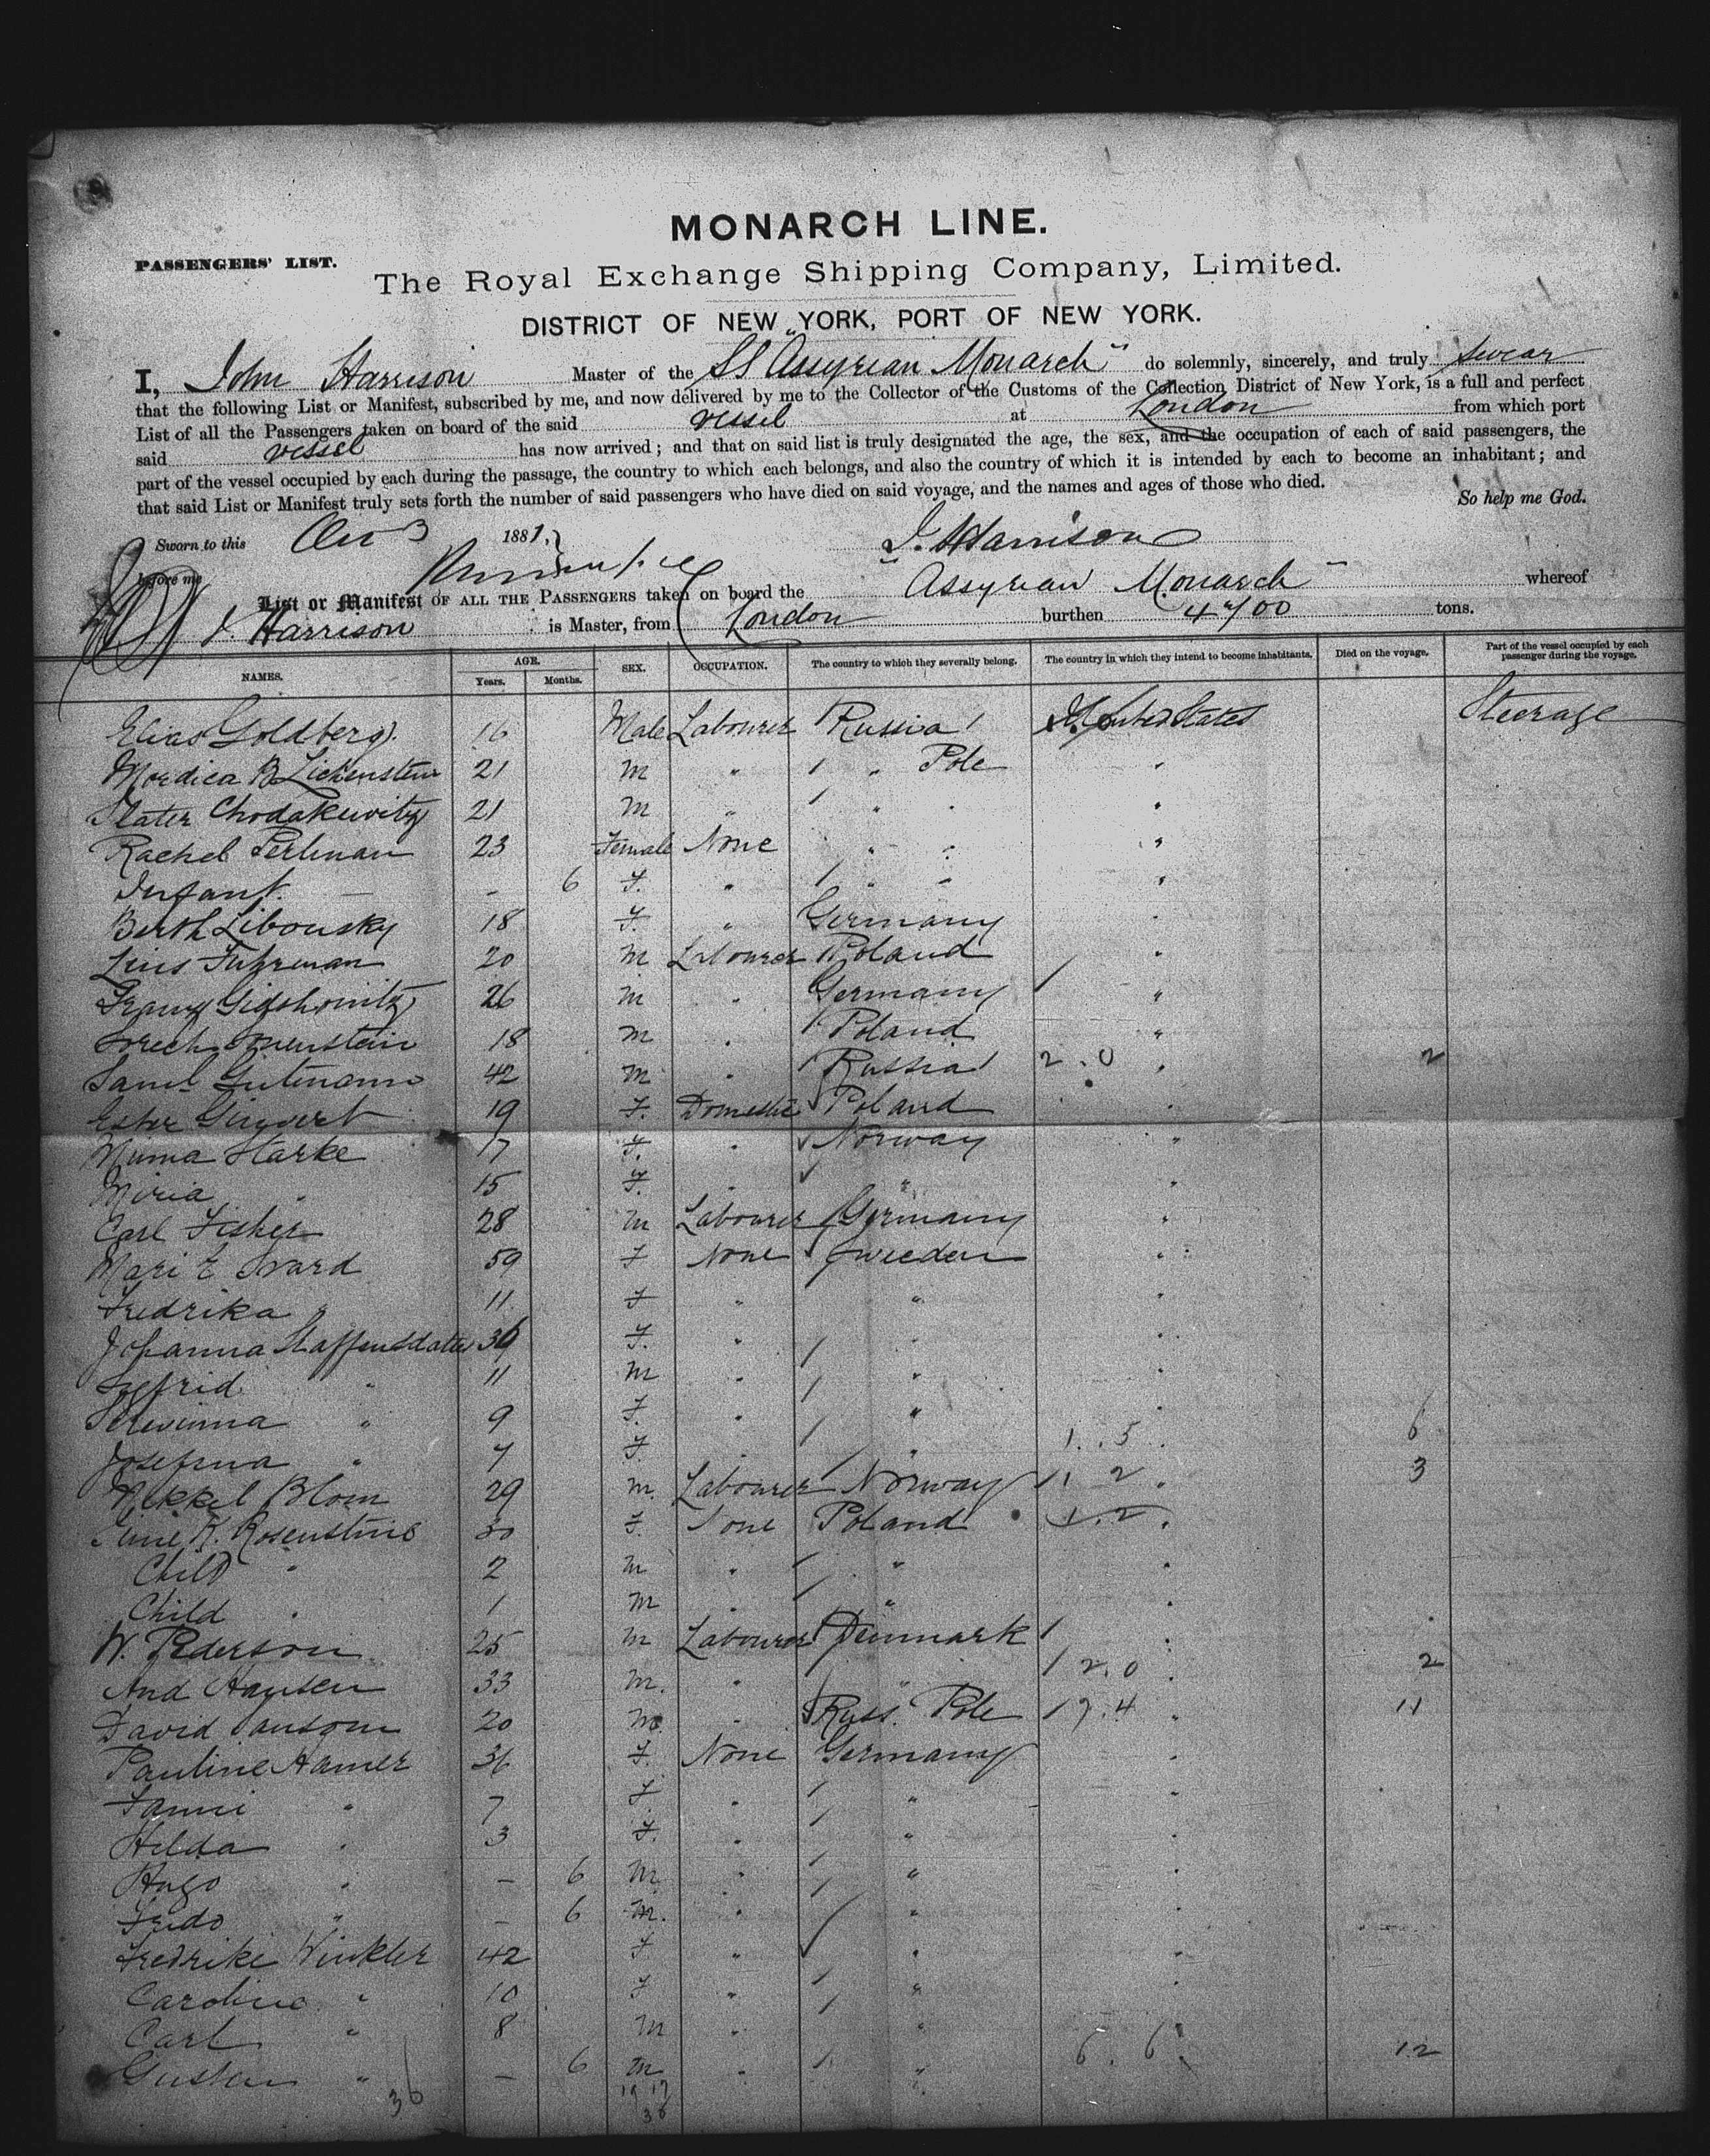 MONARCH LINE.
PASSENGERS' LIST.
The Royal Exchange Shipping Company, Limited.
DISTRICT OF NEW YORK, PORT OF NEW YORK.
I, John Harrison Master of the SS "Assyrian Monarch" do solemnly, sincerely, and truly swear
that the following List or Manifest, subscribed by me, and now delivered by me to the Collector of the Customs of the Collection District of New York, is a full and perfect
List of all the Passengers taken on board of the said vessel at London from which port
said vessel has now arrived; and that on said list is truly designated the age, the sex, and the occupation of each of said passengers, the
part of the vessel occupied by each during the passage, the country to which each belongs, and also the country of which it is intended by each to become an inhabitant; and
that said List or Manifest truly sets forth the number of said passengers who have died on said voyage, and the names and ages of those who died.
So help me God.
Sworn to this 3 1881, J. Harrison
before me
List or Manifest OF ALL THE PASSENGERS taken on board the "Assyrian Monarch" whereof
J. Harrison is Master, from London burthen 4700 tons.
NAMES. AGE. Years. Months. SEX. OCCUPATION. The country to which they severally belong. The country in which they intend to become inhabitants. Died on the voyage. Part of the vessel occupied by each passenger during the voyage.
Elias Goldberg 16 Male Labourer Russia United States Steerage
Mordica B. Lichenstein 21 M " " Pole "
Chodakewitz 21 M " " " "
Rachel Perlman 23 Female None " " "
Infant. - 6 F. " " " "
Berth Libousky 18 F. " Germany "
Fuhrman 20 M Labourer Poland "
26 M " Germany "
18 M " Poland "
Saml Gutmann 42 M " Russia 2.0 " 2
Ester 19 F. Domestic Poland "
Minna Starke 17 F. " Norway "
Miria " 15 F. " " "
Carl Fisher 28 M Labourer Germany "
Mari E Svard 59 F None Sweeden "
Fredrika " 11 F " " "
Johanna Staffensdatter 36 F. " " "
Sigfrid " 11 M " " "
" 9 F. " " "
Josefina " 7 F. " " 1.5 " 6
Nikkel Blom 29 M. Labourer Norway 1 2 " 3
K. Rosenstine 30 F. None Poland 1.2 "
Child " 2 M " " "
Child " 1 M " " "
W. Pederson 25 M Labourer Denmark "
And Hansen 33 M. " " 2.0 " 2
David 20 M. " Russ. Pole 7.4 " 11
Pauline Hamer 36 F. None Germany "
Fanni " 7 F " " "
Hilda " 3 F. " " "
Hugo " - 6 M " " "
" - 6 M. " " "
Fredrike Winkler 42 F " " "
Caroline " 10 F " " "
Carl " 8 M " " "
" - 6 M " " 6.6 " 12
36 19 17
36